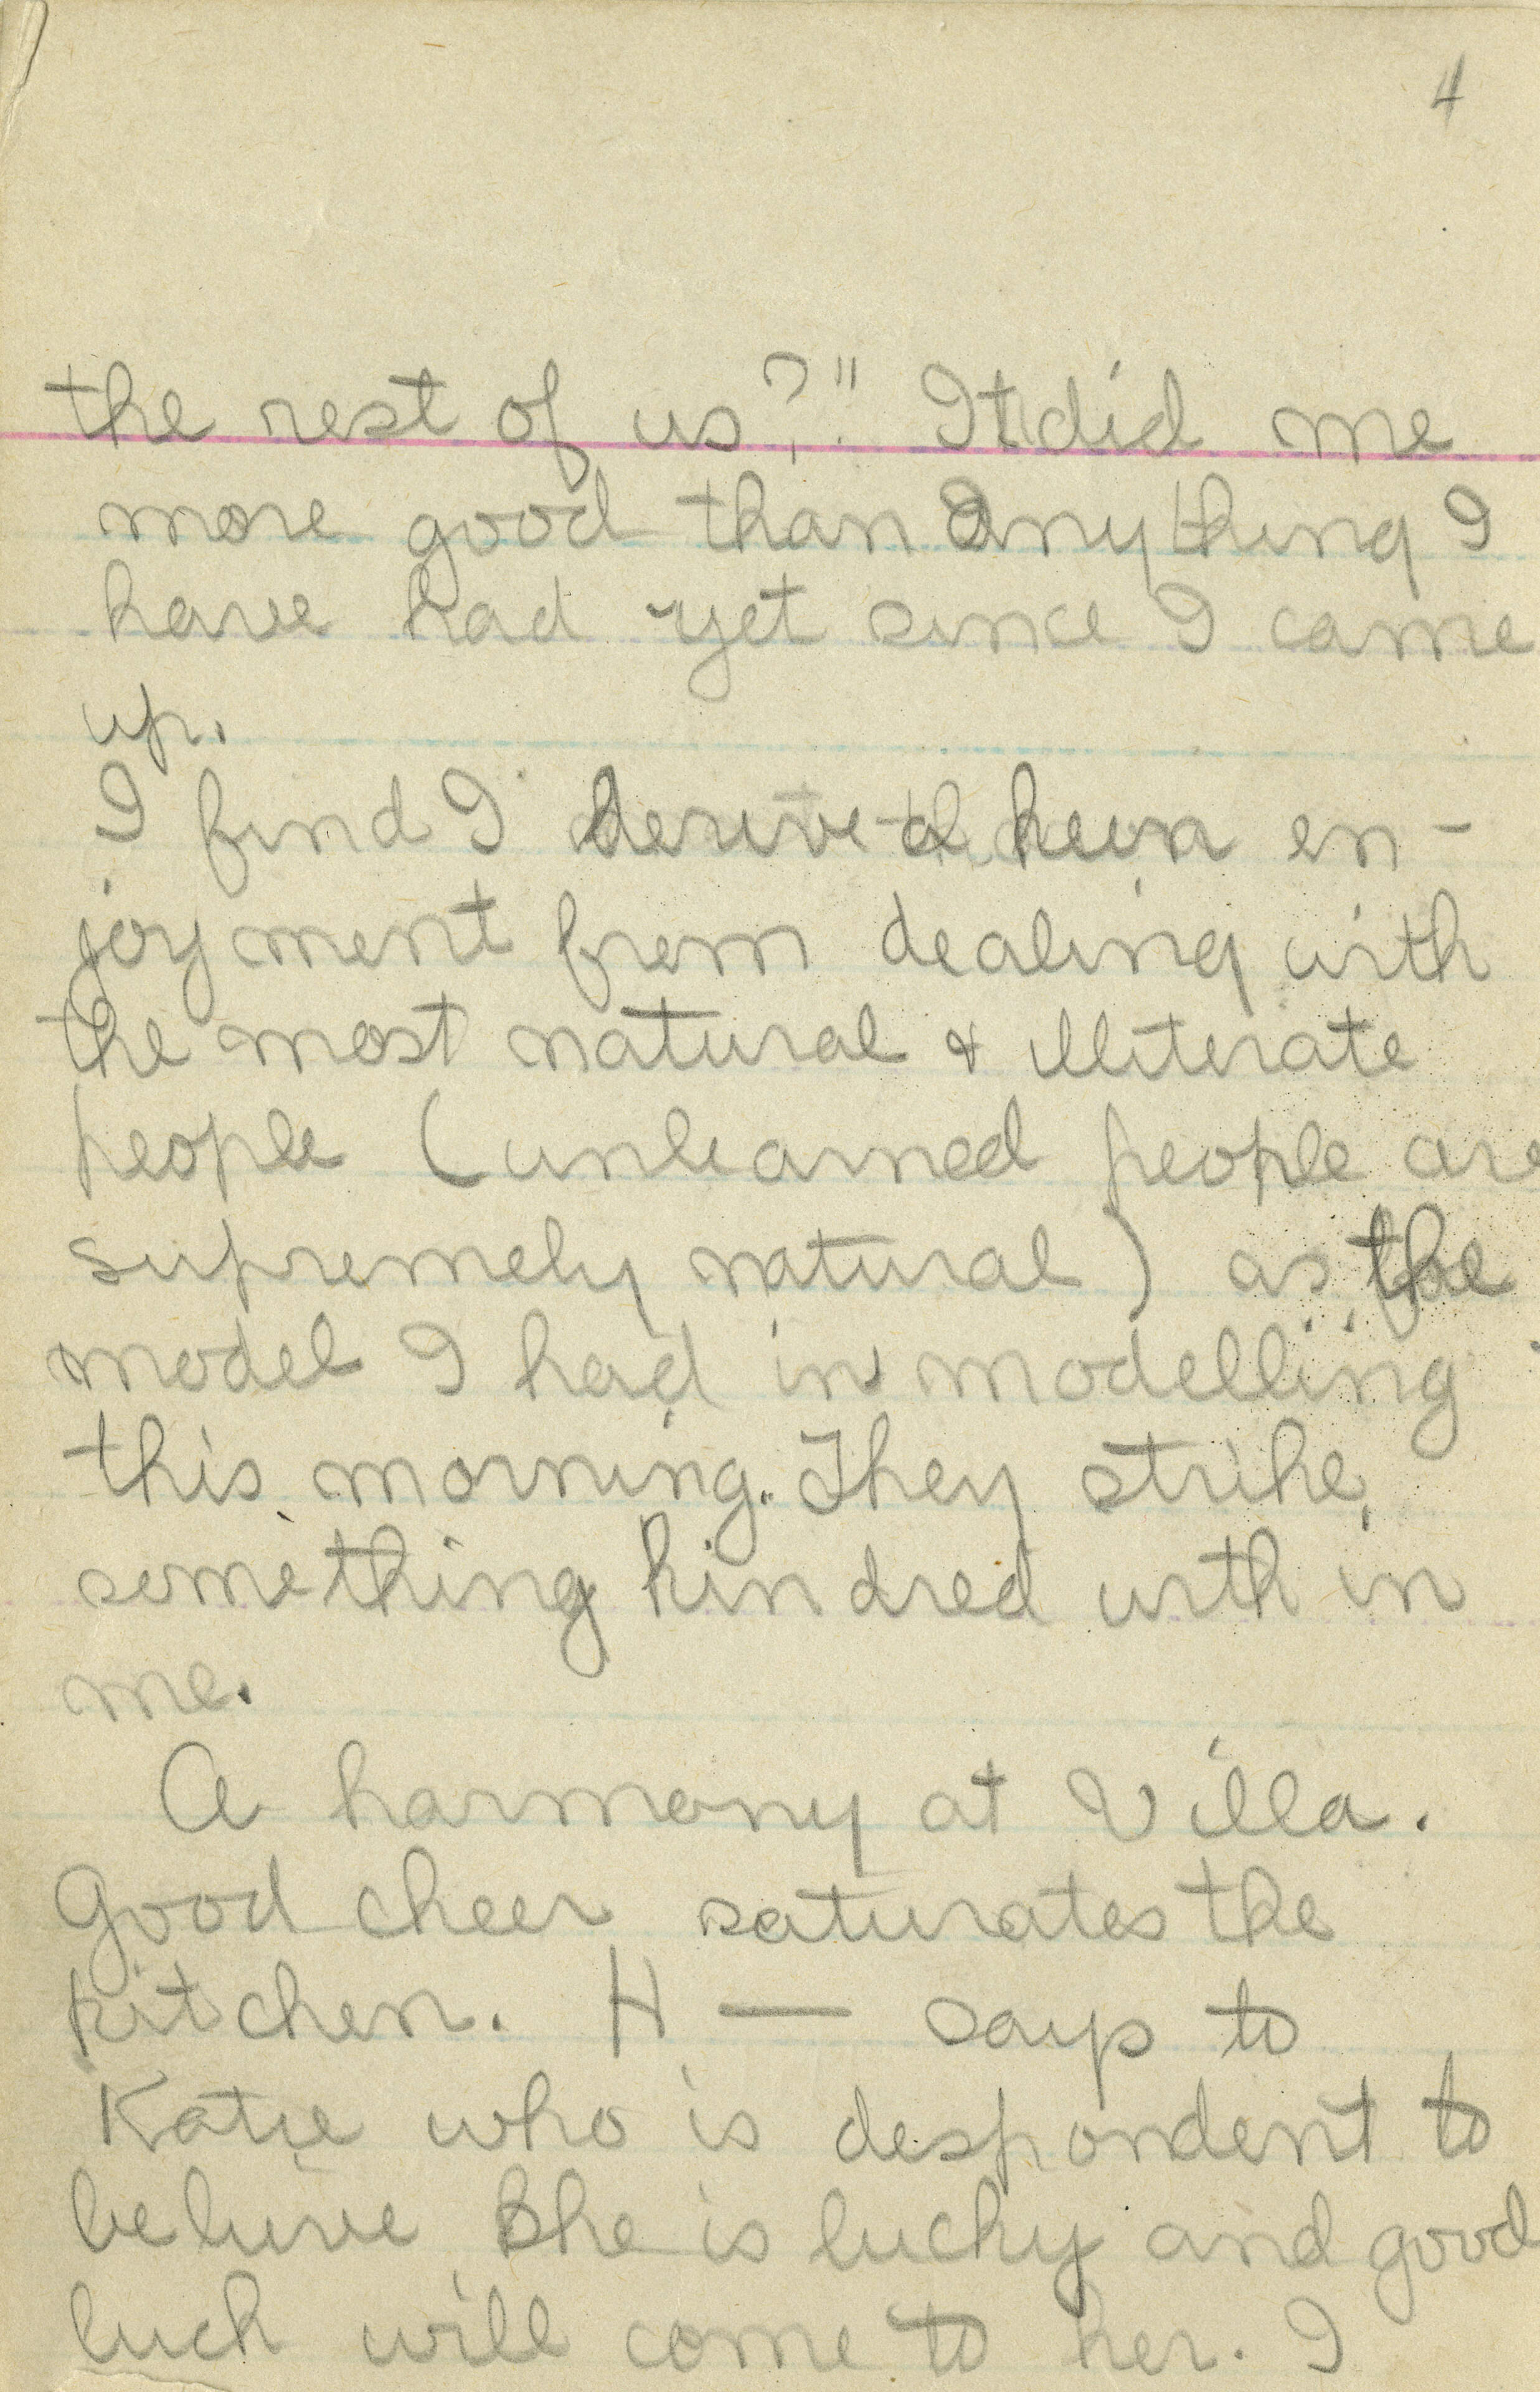 4
the rest of us?" It did me
more good than anything I
have had yet since I came
up.
I find I derive a keen en-
joyment from dealing with
the most natural & illiterate
people (unlearned people are
supremely natural) as the
model I had in modelling
this morning. They strike
something kindred with in
me.
A harmony at Villa.
Good cheer saturates the
kitchen. H — says to
Katie who is despondent to
believe she is lucky and good
luck will come to her. I